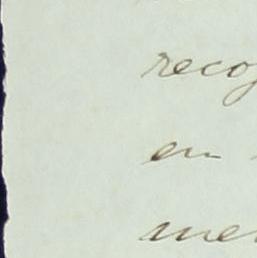 reco
en
me